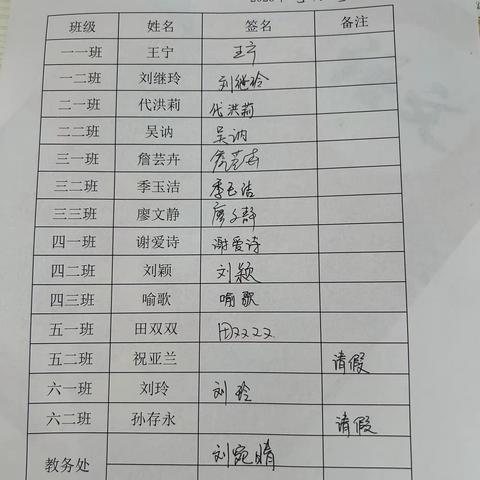 班级 姓名 签名 备注
一一班 王宁 王宁
一二班 刘继玲 刘继玲
二一班 代洪莉 代洪莉
二二班 吴讷 吴讷
三一班 詹芸卉 詹芸卉
三二班 季玉洁 季玉洁
三三班 廖文静 廖文静
四一班 谢爱诗 谢爱诗
四二班 刘颖 刘颖
四三班 喻歌 喻歌
五一班 田双双 田双双
五二班 祝亚兰 请假
六一班 刘玲 刘玲
六二班 孙存永 请假
教务处 刘宛晴